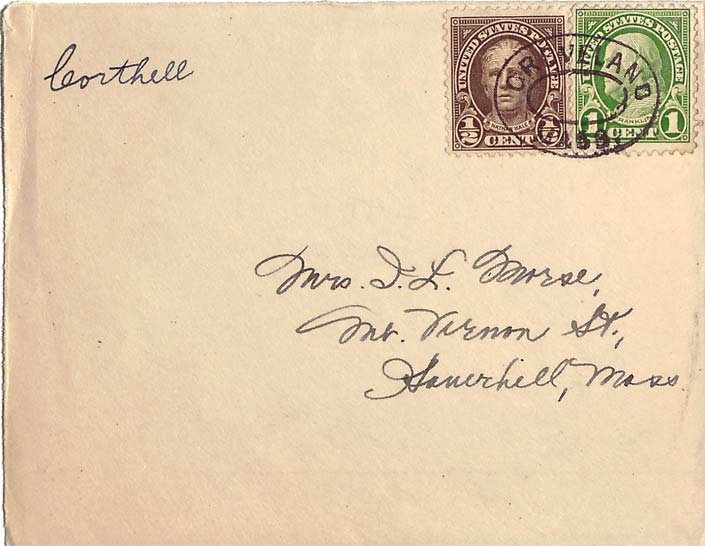 Corthell
UNITED STATES POSTAGE
NATHAN HALE
1/2 CENT 1/2
UNITED STATES POSTAGE
FRANKLIN
1 CENT 1
GROVELAND
MASS.
Mrs. I. L. Morse,
Mt. Vernon St.,
Haverhill, Mass